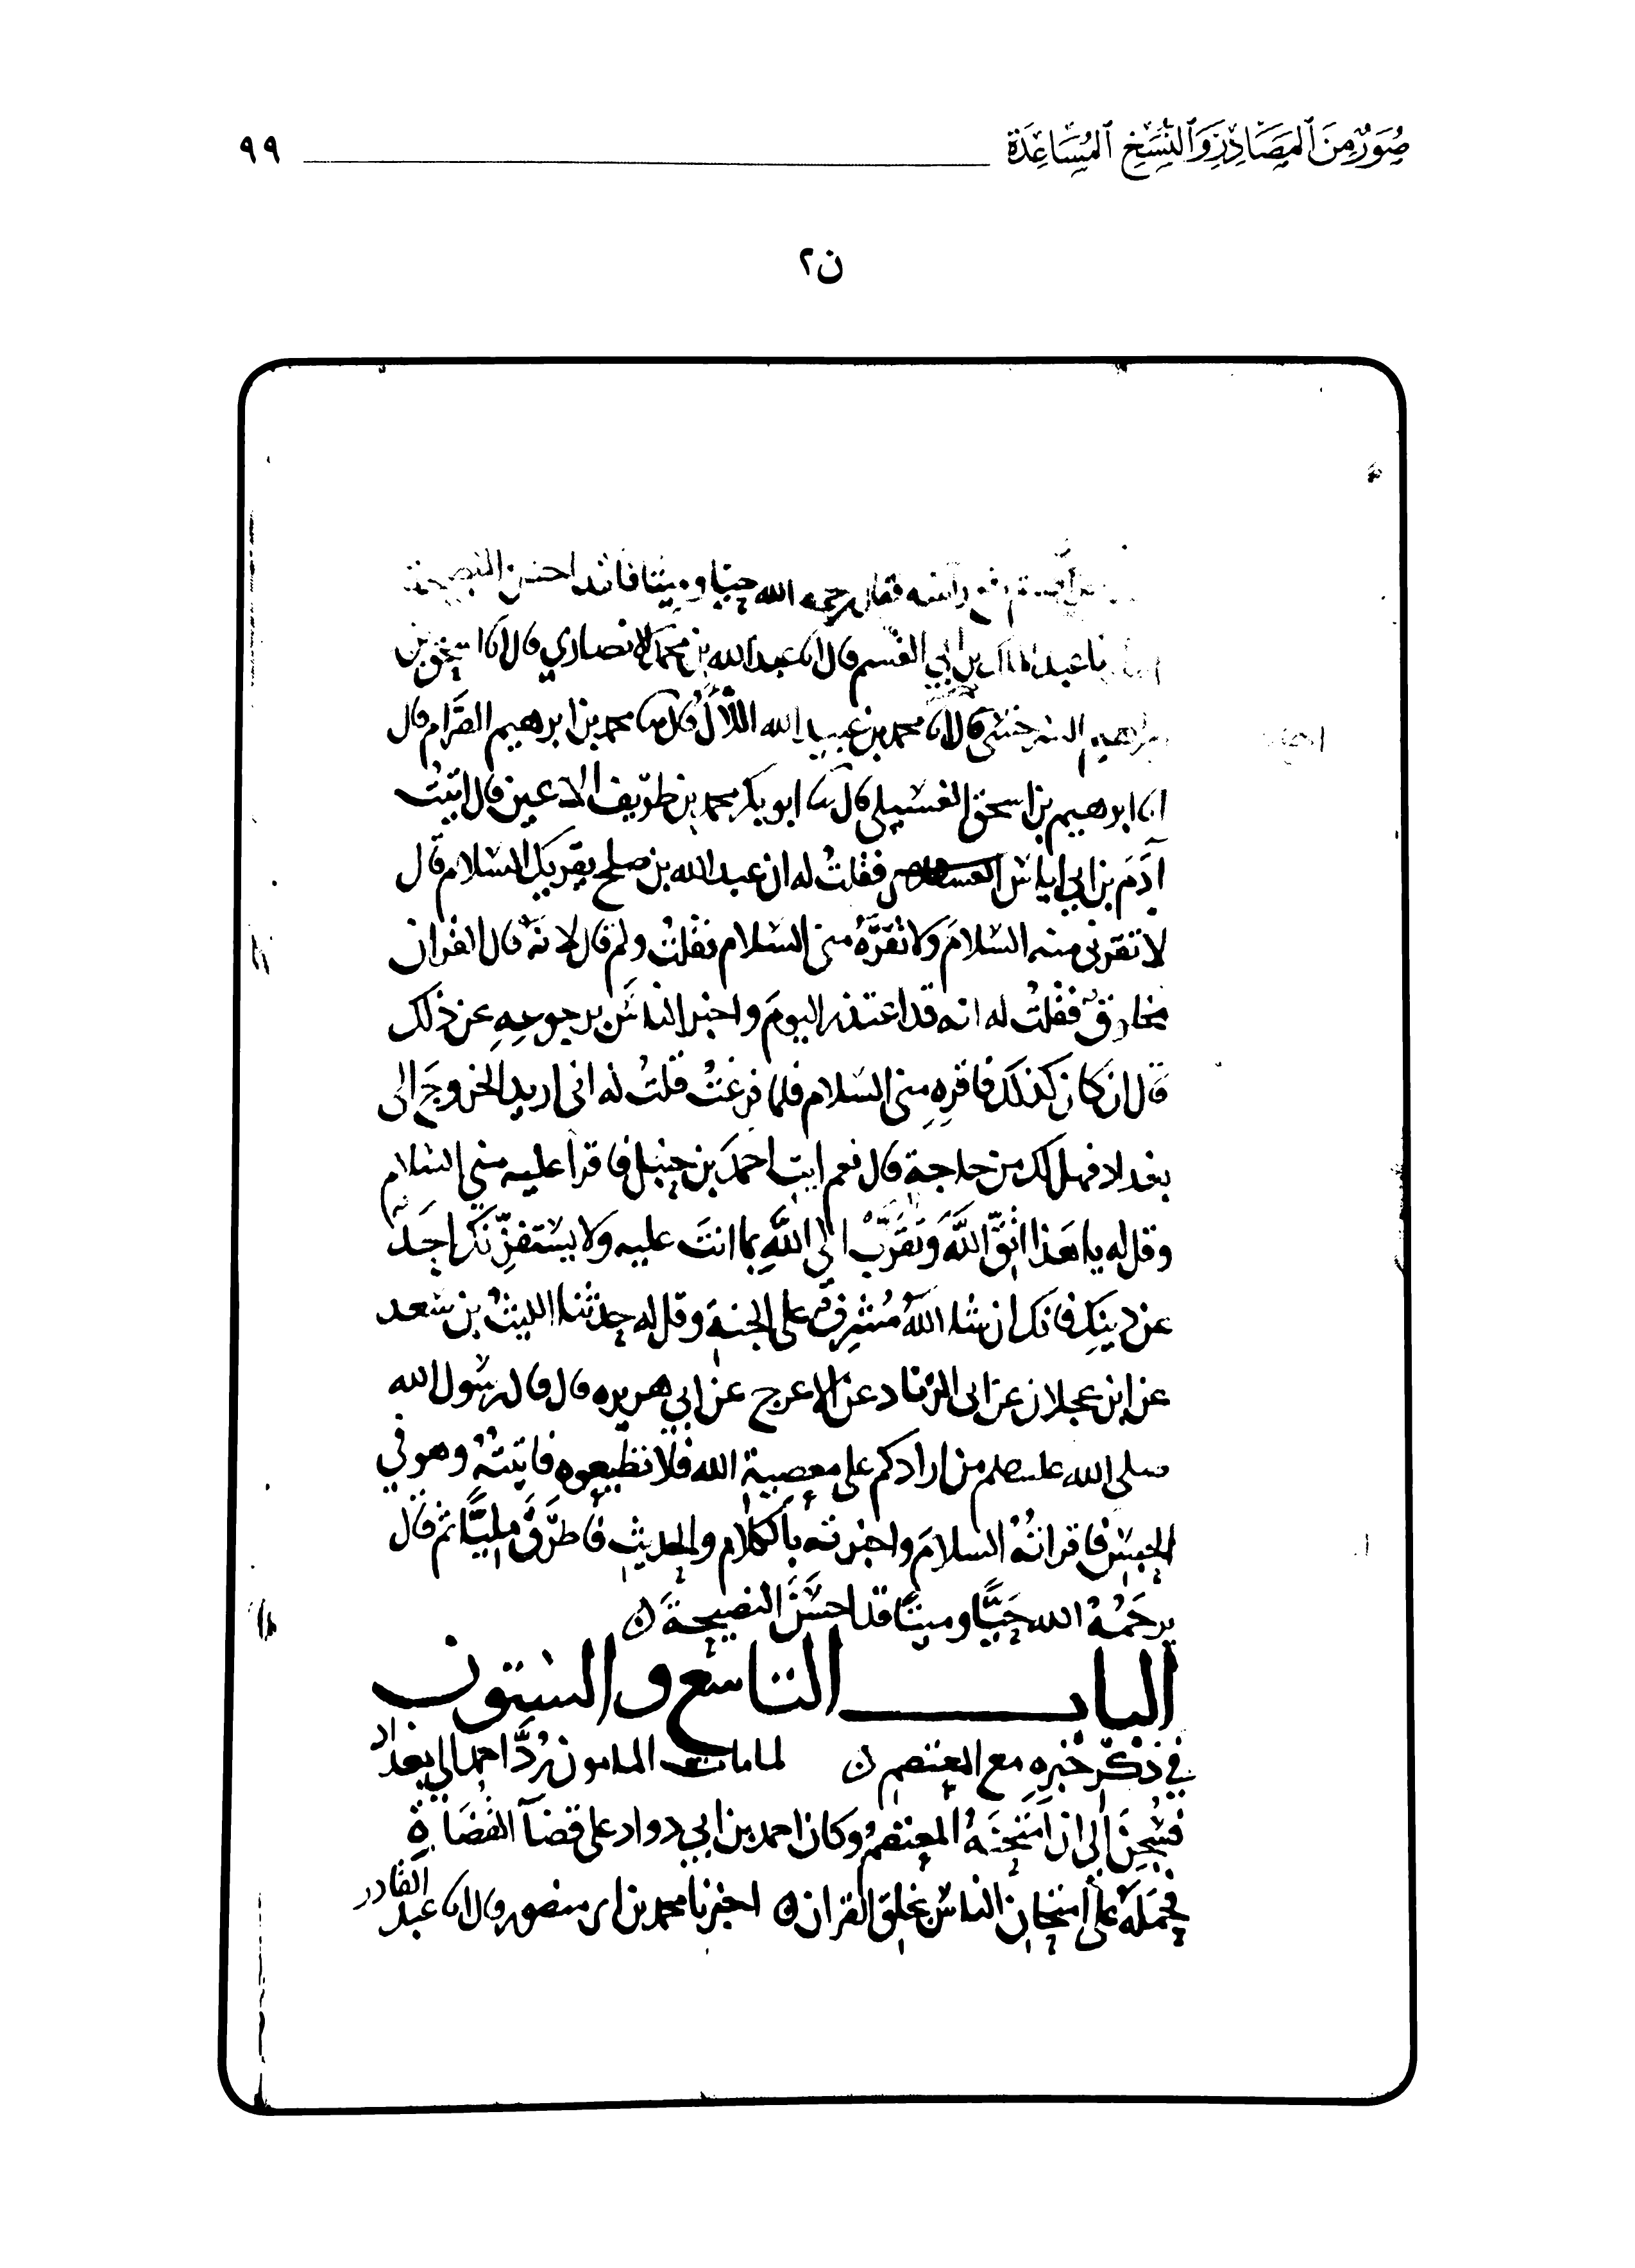 صُوَرٌ مِنَ ٱلْمَصَادِرِ وَٱلنُّسَخِ ٱلْمُسَاعِدَةِ ٩٩
ن٢
رأسه فقال رحمه الله حيًا وميتًا فلقد احسن النصيحة
بن ابي القسم قال انا عبد الله بن محمد الانصاري قال انا اسحق بن
ابرهيم السرخسي قال انا محمد بن عبيد الله اللآل قال نا محمد بن ابرهيم الصَّرام قال
انا ابرهيم بن اسحق الغسيلي قال نا ابو بكر محمد بن طريف الاعين قال اتيتُ
آدَمَ بن ابي اياس فقلتُ له ان عبد الله بن صلح يقريك السلام قال
لا تقرني منه السلامَ ولا تُقرَّهُ مني السلام فقلتُ ولم قال لانَّه قال القران
مخلوقٌ فقلتُ له انه قد اعتذر اليومَ واخبر الناسَ برجوعهِ عن ذلك
قال ان كان كذلك فاقرِهِ مني السلام فلما فرغتُ قلتُ له اني اريد الخروجَ الى
بغداد فهل لك من حاجة قال نعم ايت احمدَ بن حنبل فاقرا عليه مني السلام
وقل له يا هَذا اتقِ اللَّهَ وتقرَّب الى اللَّهِ بما انتَ عليه ولا يستفزّنكَ احَد
عن دينِك فانك ان شا اللَّهُ مُشرِفٌ على الجنةِ وقل له حدثنا الليثُ بن سعد
عن ابن عجلان عن ابي الزناد عن الاعرج عن ابي هريره قال قال رسول الله
صلى الله عليه وسلم من ارادكم على معصية الله فلا تطيعوه فاتيتُهُ وهو في
الحبس فاقراتُهُ السلامَ واخبرته بالكلام والحديث فاطرَقَ مليًّا ثم قال
يرحَمُهُ الله حَيًّا وميتًا قد احسَنَ النصيحةَ ن
الباب التاسع والستون
في ذكر خبرِهِ مع المعتصم ن لما مات المامون رُدَّ احمد الى بغداد
فسُجِنَ الى ان امتَحنَهُ المعتصمُ وكان احمد بن ابي دواد على قضآ القُضَاةِ
فحمَلَهُ على امتحانِ الناس بخلق القران ن اخبرنا محمد بن ابي منصور قال انا عبد القادر